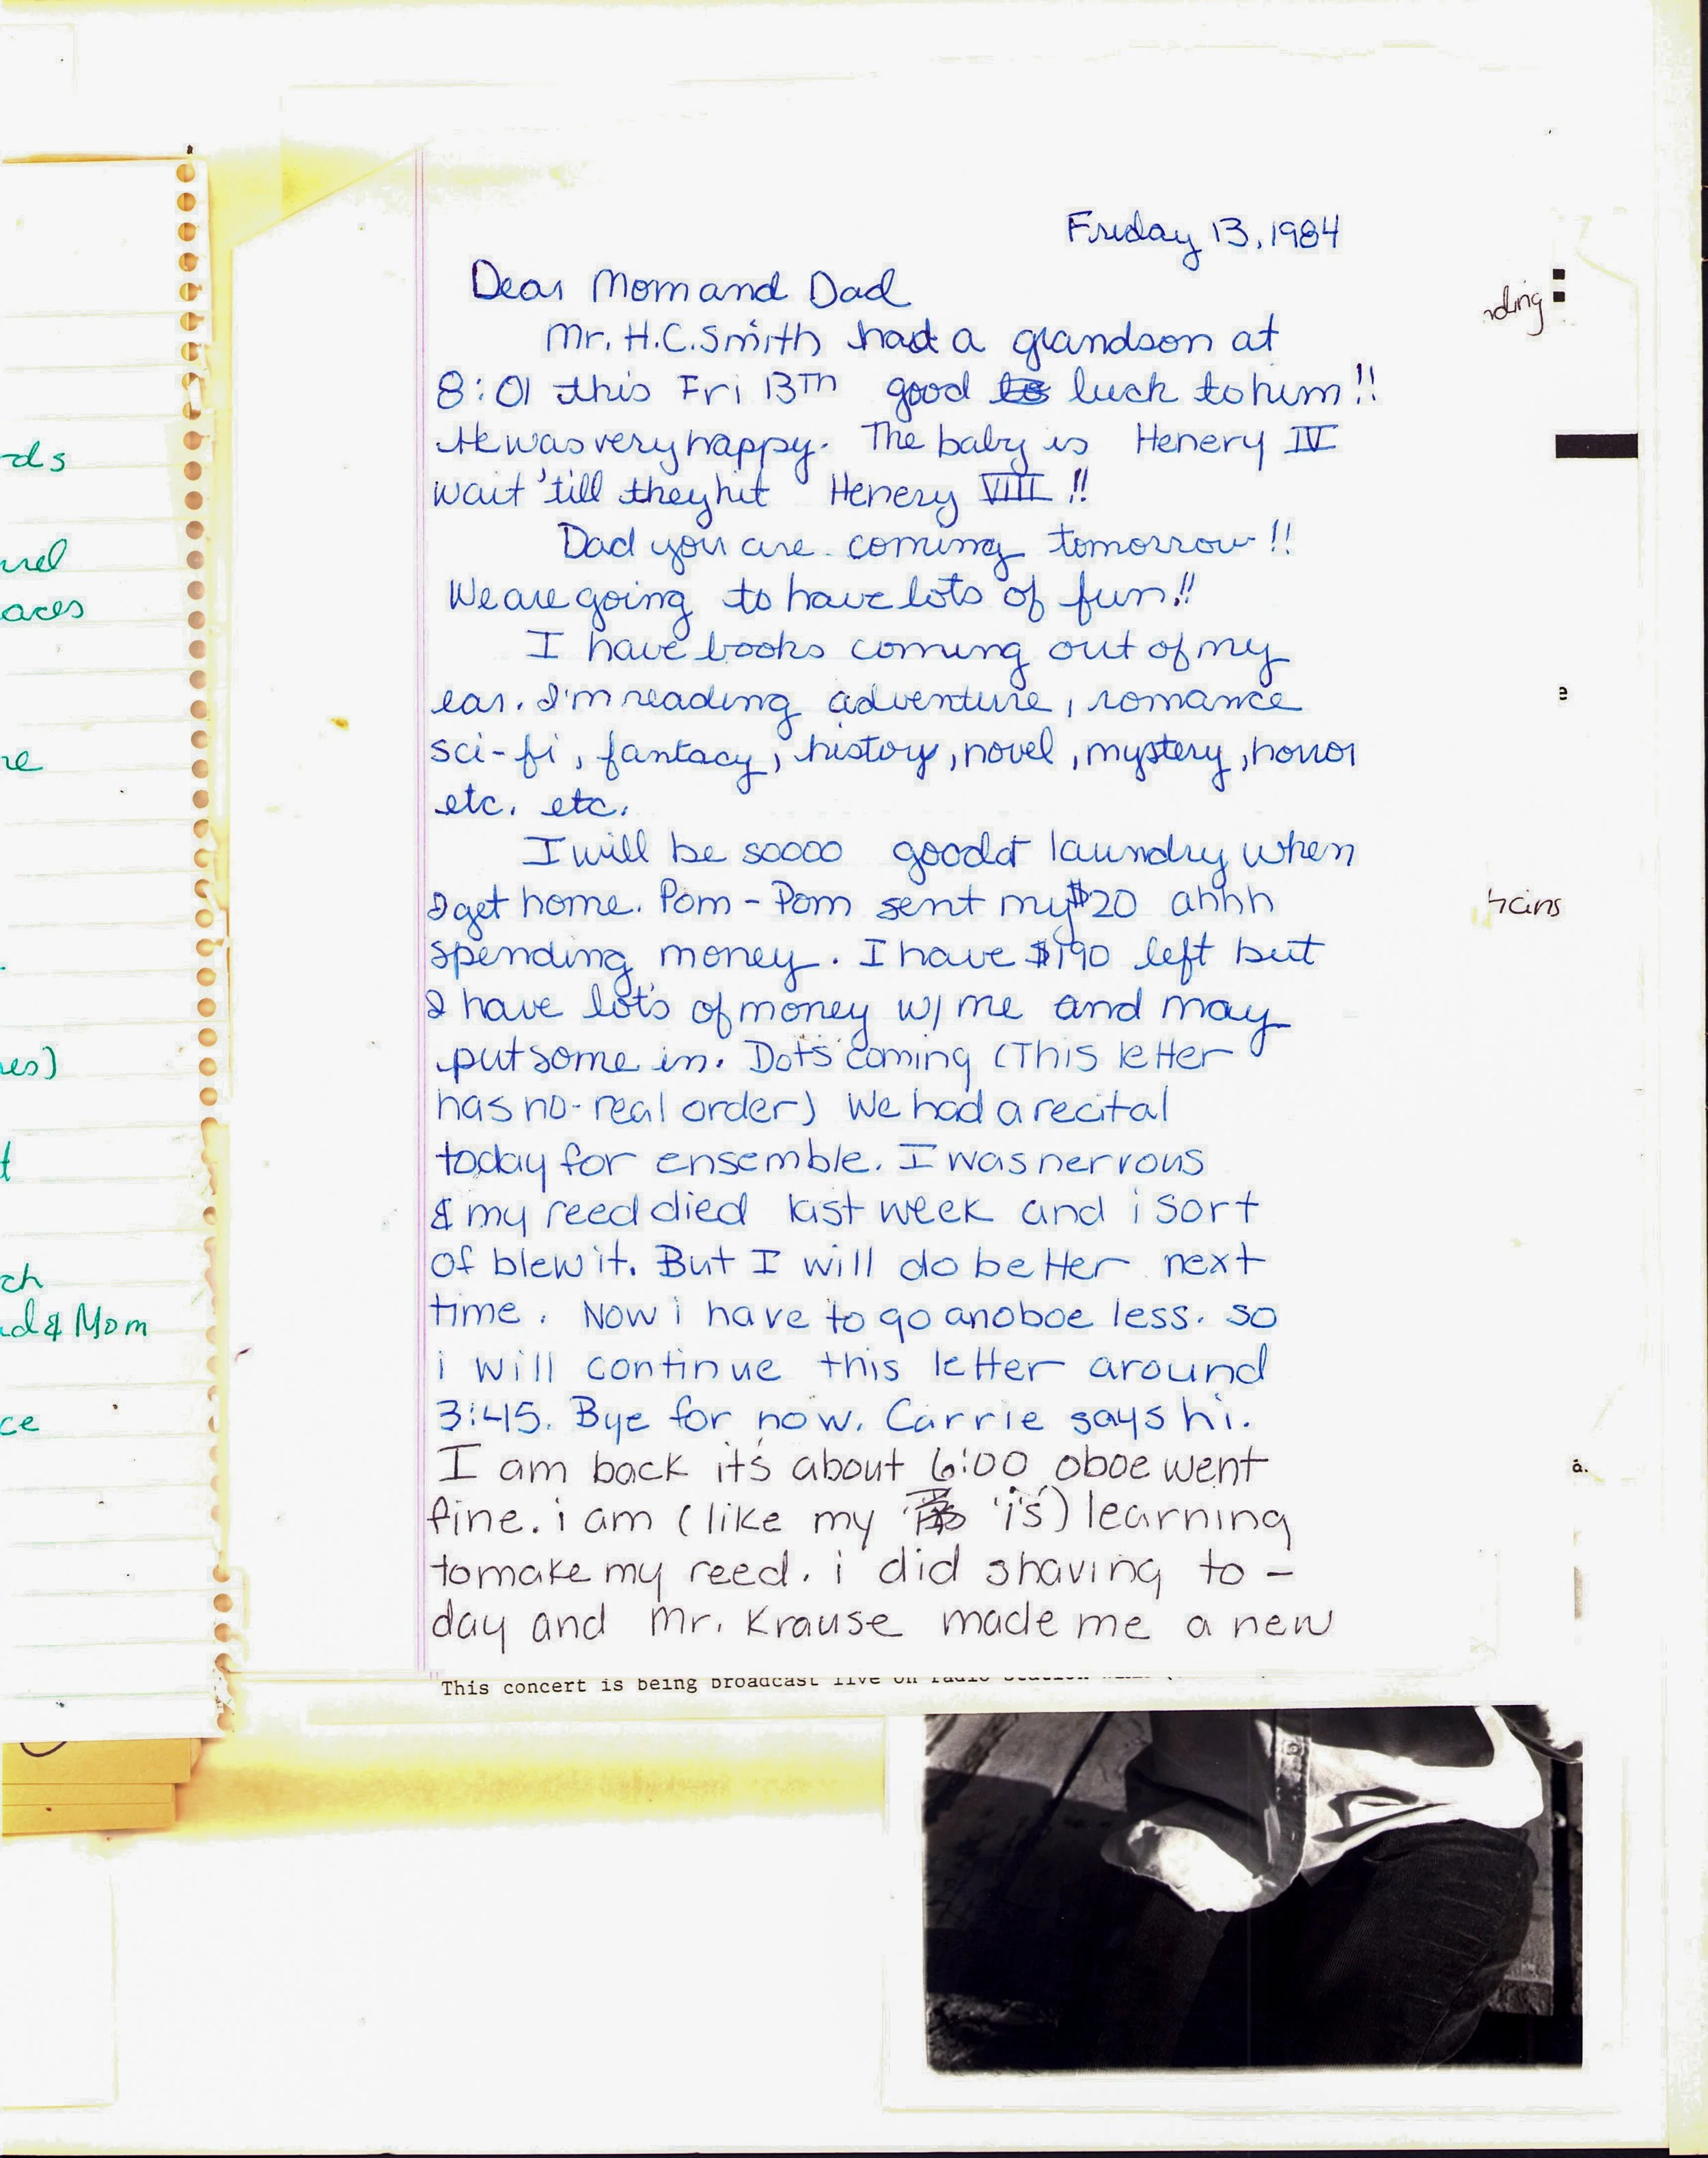 Friday 13, 1984
Dear Mom and Dad
Mr. H.C. Smith had a grandson at
8:01 this Fri 13TH good to luck to him!!
He was very happy. The baby is Henery IV
wait 'till they hit Henery VIII!!
Dad you are coming tomorrow!!
We are going to have lots of fun!!
I have books coming out of my
ear. I'm reading adventure, romance
sci-fi, fantacy, history, novel, mystery, horror
etc. etc.
I will be soooo good at laundry when
I get home. Pom-Pom sent my $20 ahhh
spending money. I have $190 left but
I have lot's of money w/ me and may
put some in. Dot's coming (This letter
has no-real order) We had a recital
today for ensemble. I was nervous
& my reed died last week and i sort
of blew it. But I will do better next
time. Now i have to go an oboe less. so
i will continue this letter around
3:45. Bye for now. Carrie says hi.
I am back it's about 6:00 oboe went
fine. i am (like my 'i's) learning
to make my reed. i did shaving to-
day and Mr. Krause made me a new
This concert is being broadcast live on radio station
nding
e
hains
a.
ds
nel
aces
re
es)
t
ch
d & Mom
ce